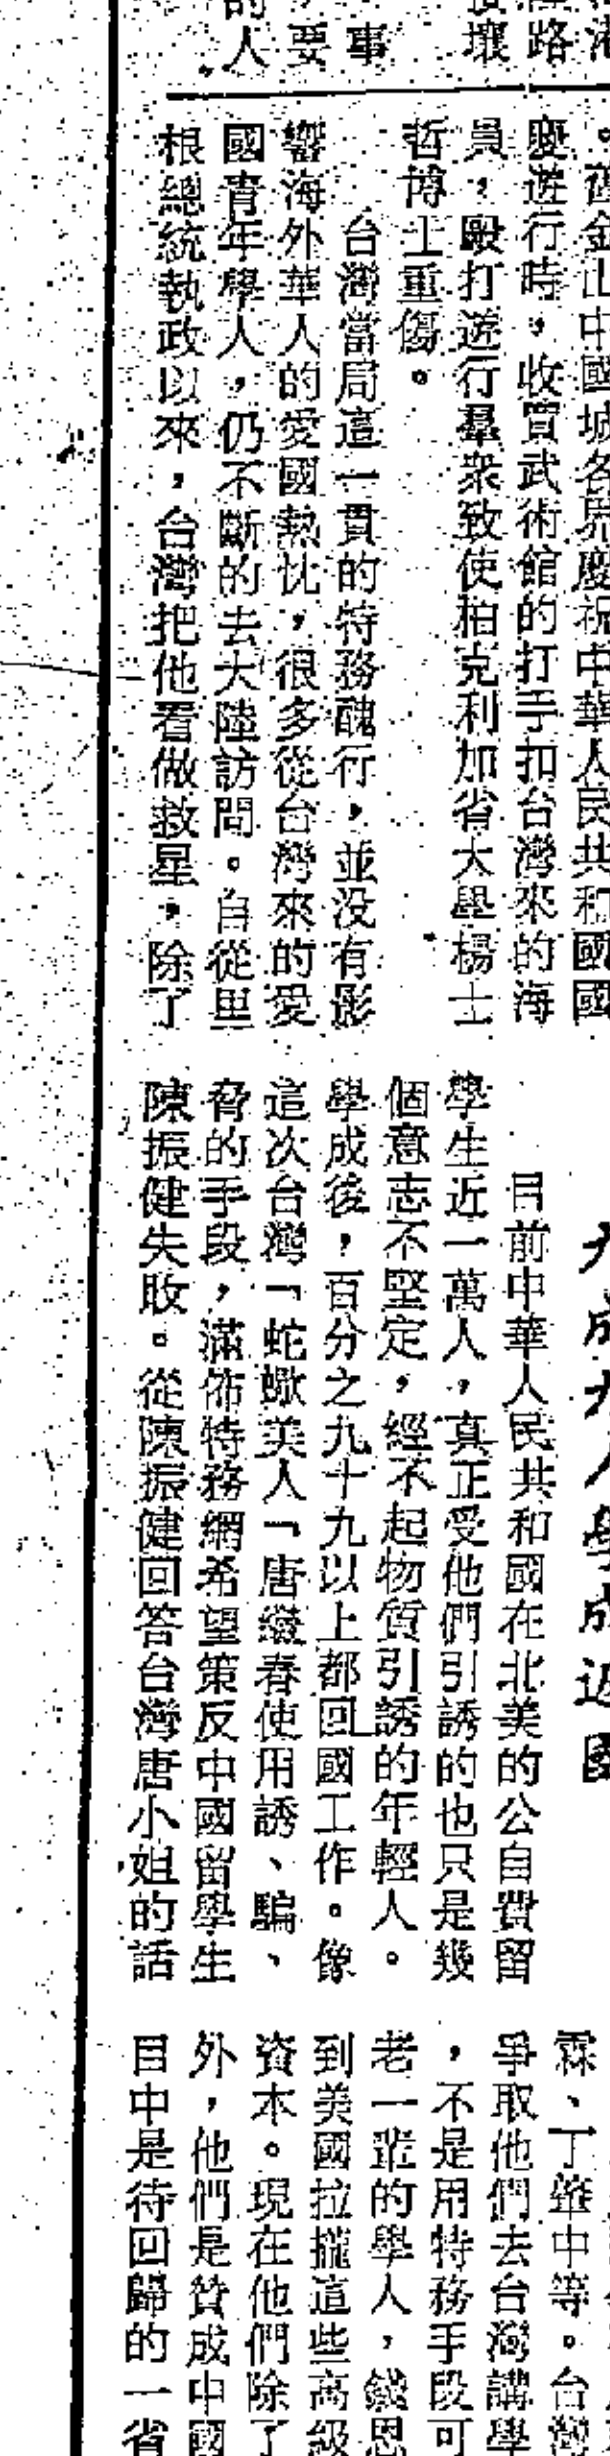 路
壞
事
，要
的人
。舊金山中國城各界慶祝中華人民共和國國
慶遊行時，收買武術館的打手扣台灣來的海
員，毆打遊行羣衆致使柏克利加省大學楊士
哲博士重傷。
台灣當局這一貫的特務醜行，並没有影
響海外華人的愛國熱忱，很多從台灣來的愛
國青年學人，仍不斷的去大陸訪問。自從里
根總統執政以來，台灣把他看做救星，除了
九成九人學成返國
目前中華人民共和國在北美的公自費留
學生近一萬人，真正受他們引誘的也只是幾
個意志不堅定，經不起物質引誘的年輕人。
學成後，百分之九十九以上都回國工作。像
這次台灣﹁蛇蠍美人﹁唐繼春使用誘、騙、
脅的手段，滿佈特務網希望策反中國留學生
陳振健失敗。從陳振健回答台灣唐小姐的話
霖、丁肇中等。台灣
爭取他們去台灣講學
，不是用特務手段可
老一輩的學人，錢思
到美國拉攏這些高級
資本。現在他們除了
外，他們是贊成中國
目中是待回歸的一省